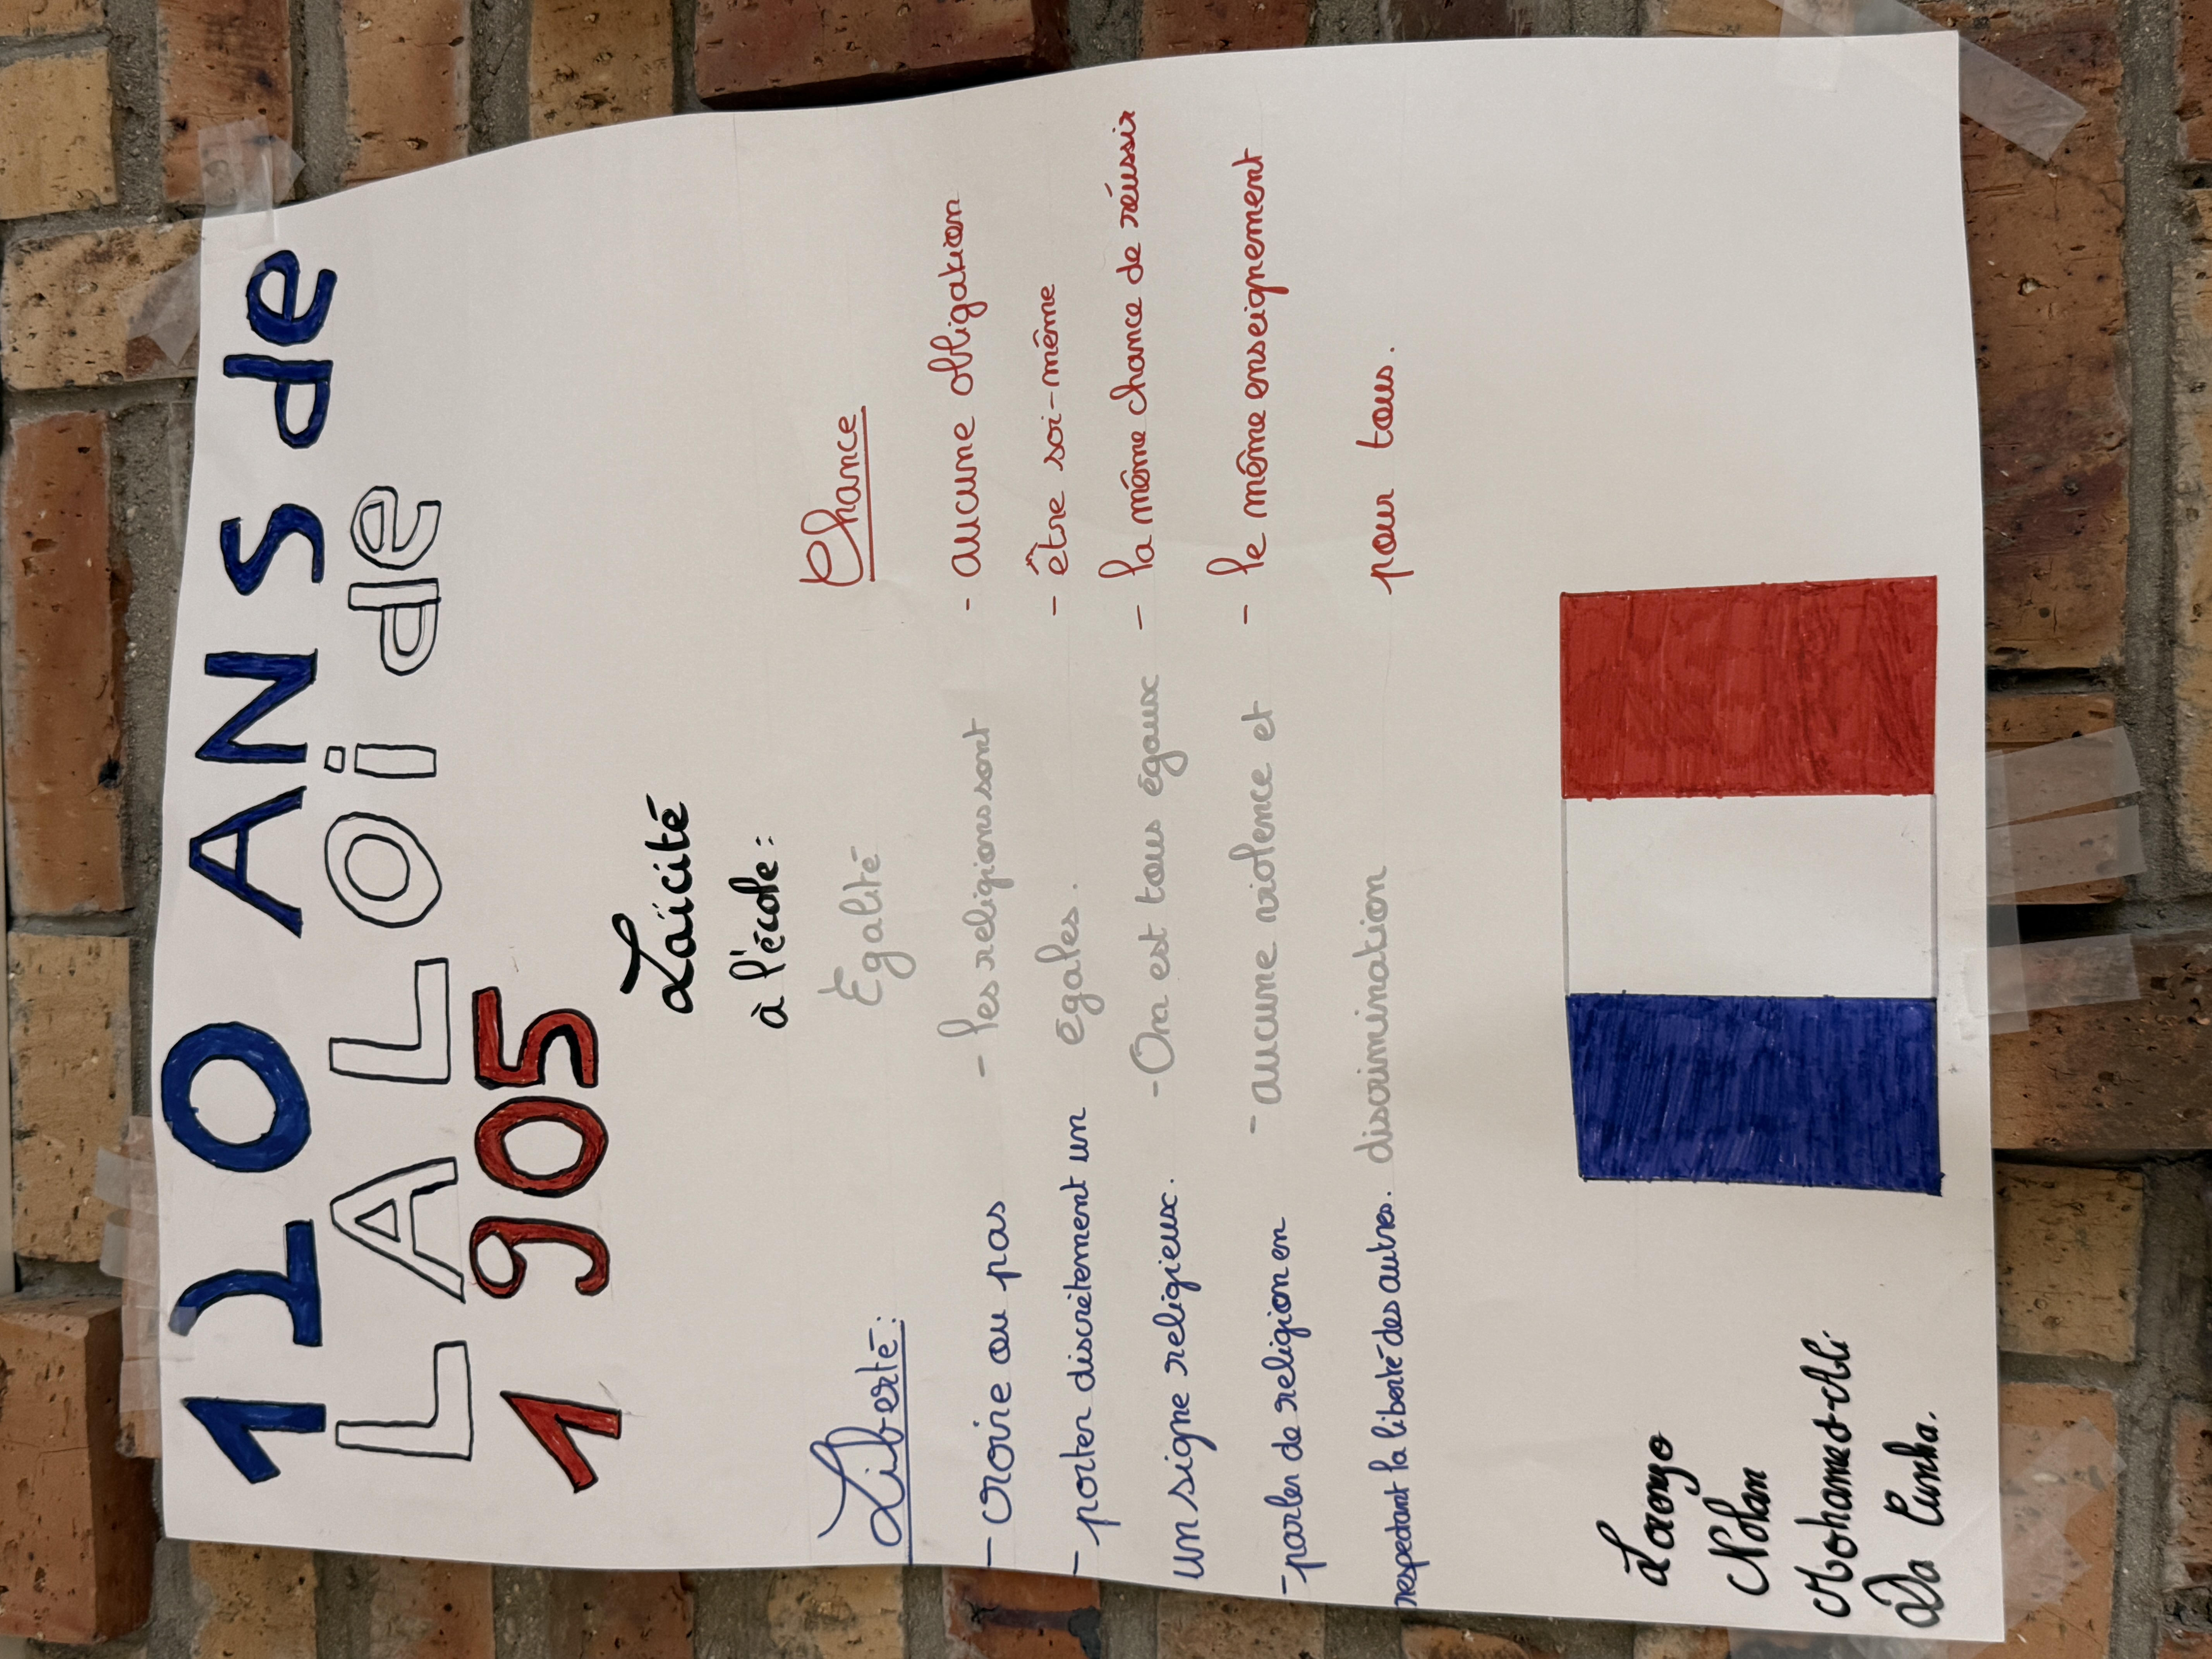 120 ANS de
LA LOi de
1905
Laïcité
à l'école :
Liberté :
- croire ou pas
- porter discrètement un
un signe religieux.
- parler de religion en
respectant la liberté des autres.
Égalité
- les religions sont
égales.
- On est tous égaux
- aucune violence et
discrimination
Chance
- aucune obligation
- être soi-même
- la même chance de réussir
- le même enseignement
pour tous.
Nolan
Mohamed-Ali
Da Cunha.